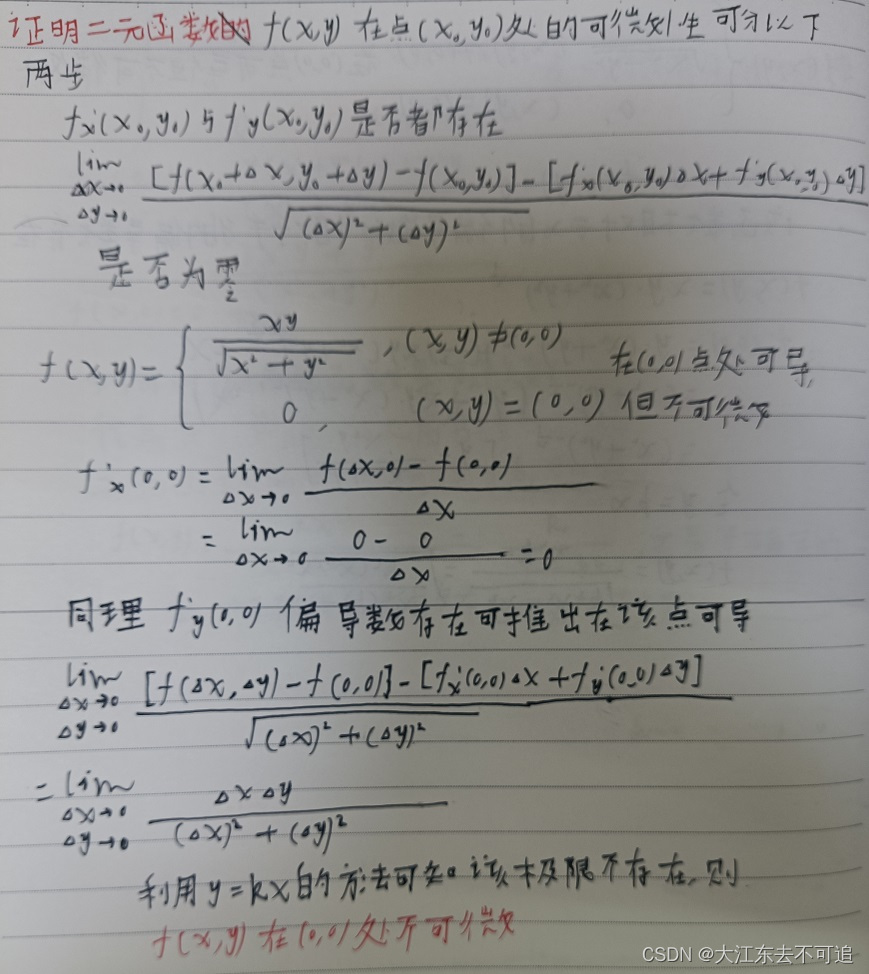 证明二元函数的 f(x,y) 在点(x₀,y₀)处的可微性可分以下
两步
f'x(x₀,y₀)与f'y(x₀,y₀)是否都存在
lim Δx→0 Δy→0 [f(x₀+Δx,y₀+Δy)-f(x₀,y₀)]-[f'x(x₀,y₀)Δx+f'y(x₀,y₀)Δy] / √(Δx)²+(Δy)²
是否为零
f(x,y)= { xy / √x²+y² , (x,y)≠(0,0) 在(0,0)点处可导,
0, (x,y)=(0,0) 但不可微
f'x(0,0)= lim Δx→0 f(Δx,0)-f(0,0) / Δx
= lim Δx→0 0-0 / Δx =0
同理 f'y(0,0) 偏导数存在可推出在该点可导
lim Δx→0 Δy→0 [f(Δx,Δy)-f(0,0)]-[f'x(0,0)Δx+f'y(0,0)Δy] / √(Δx)²+(Δy)²
= lim Δx→0 Δy→0 ΔxΔy / (Δx)²+(Δy)²
利用y=kx的方法可知。该极限不存在,则
f(x,y)在(0,0)处不可微
CSDN @大江东去不可追